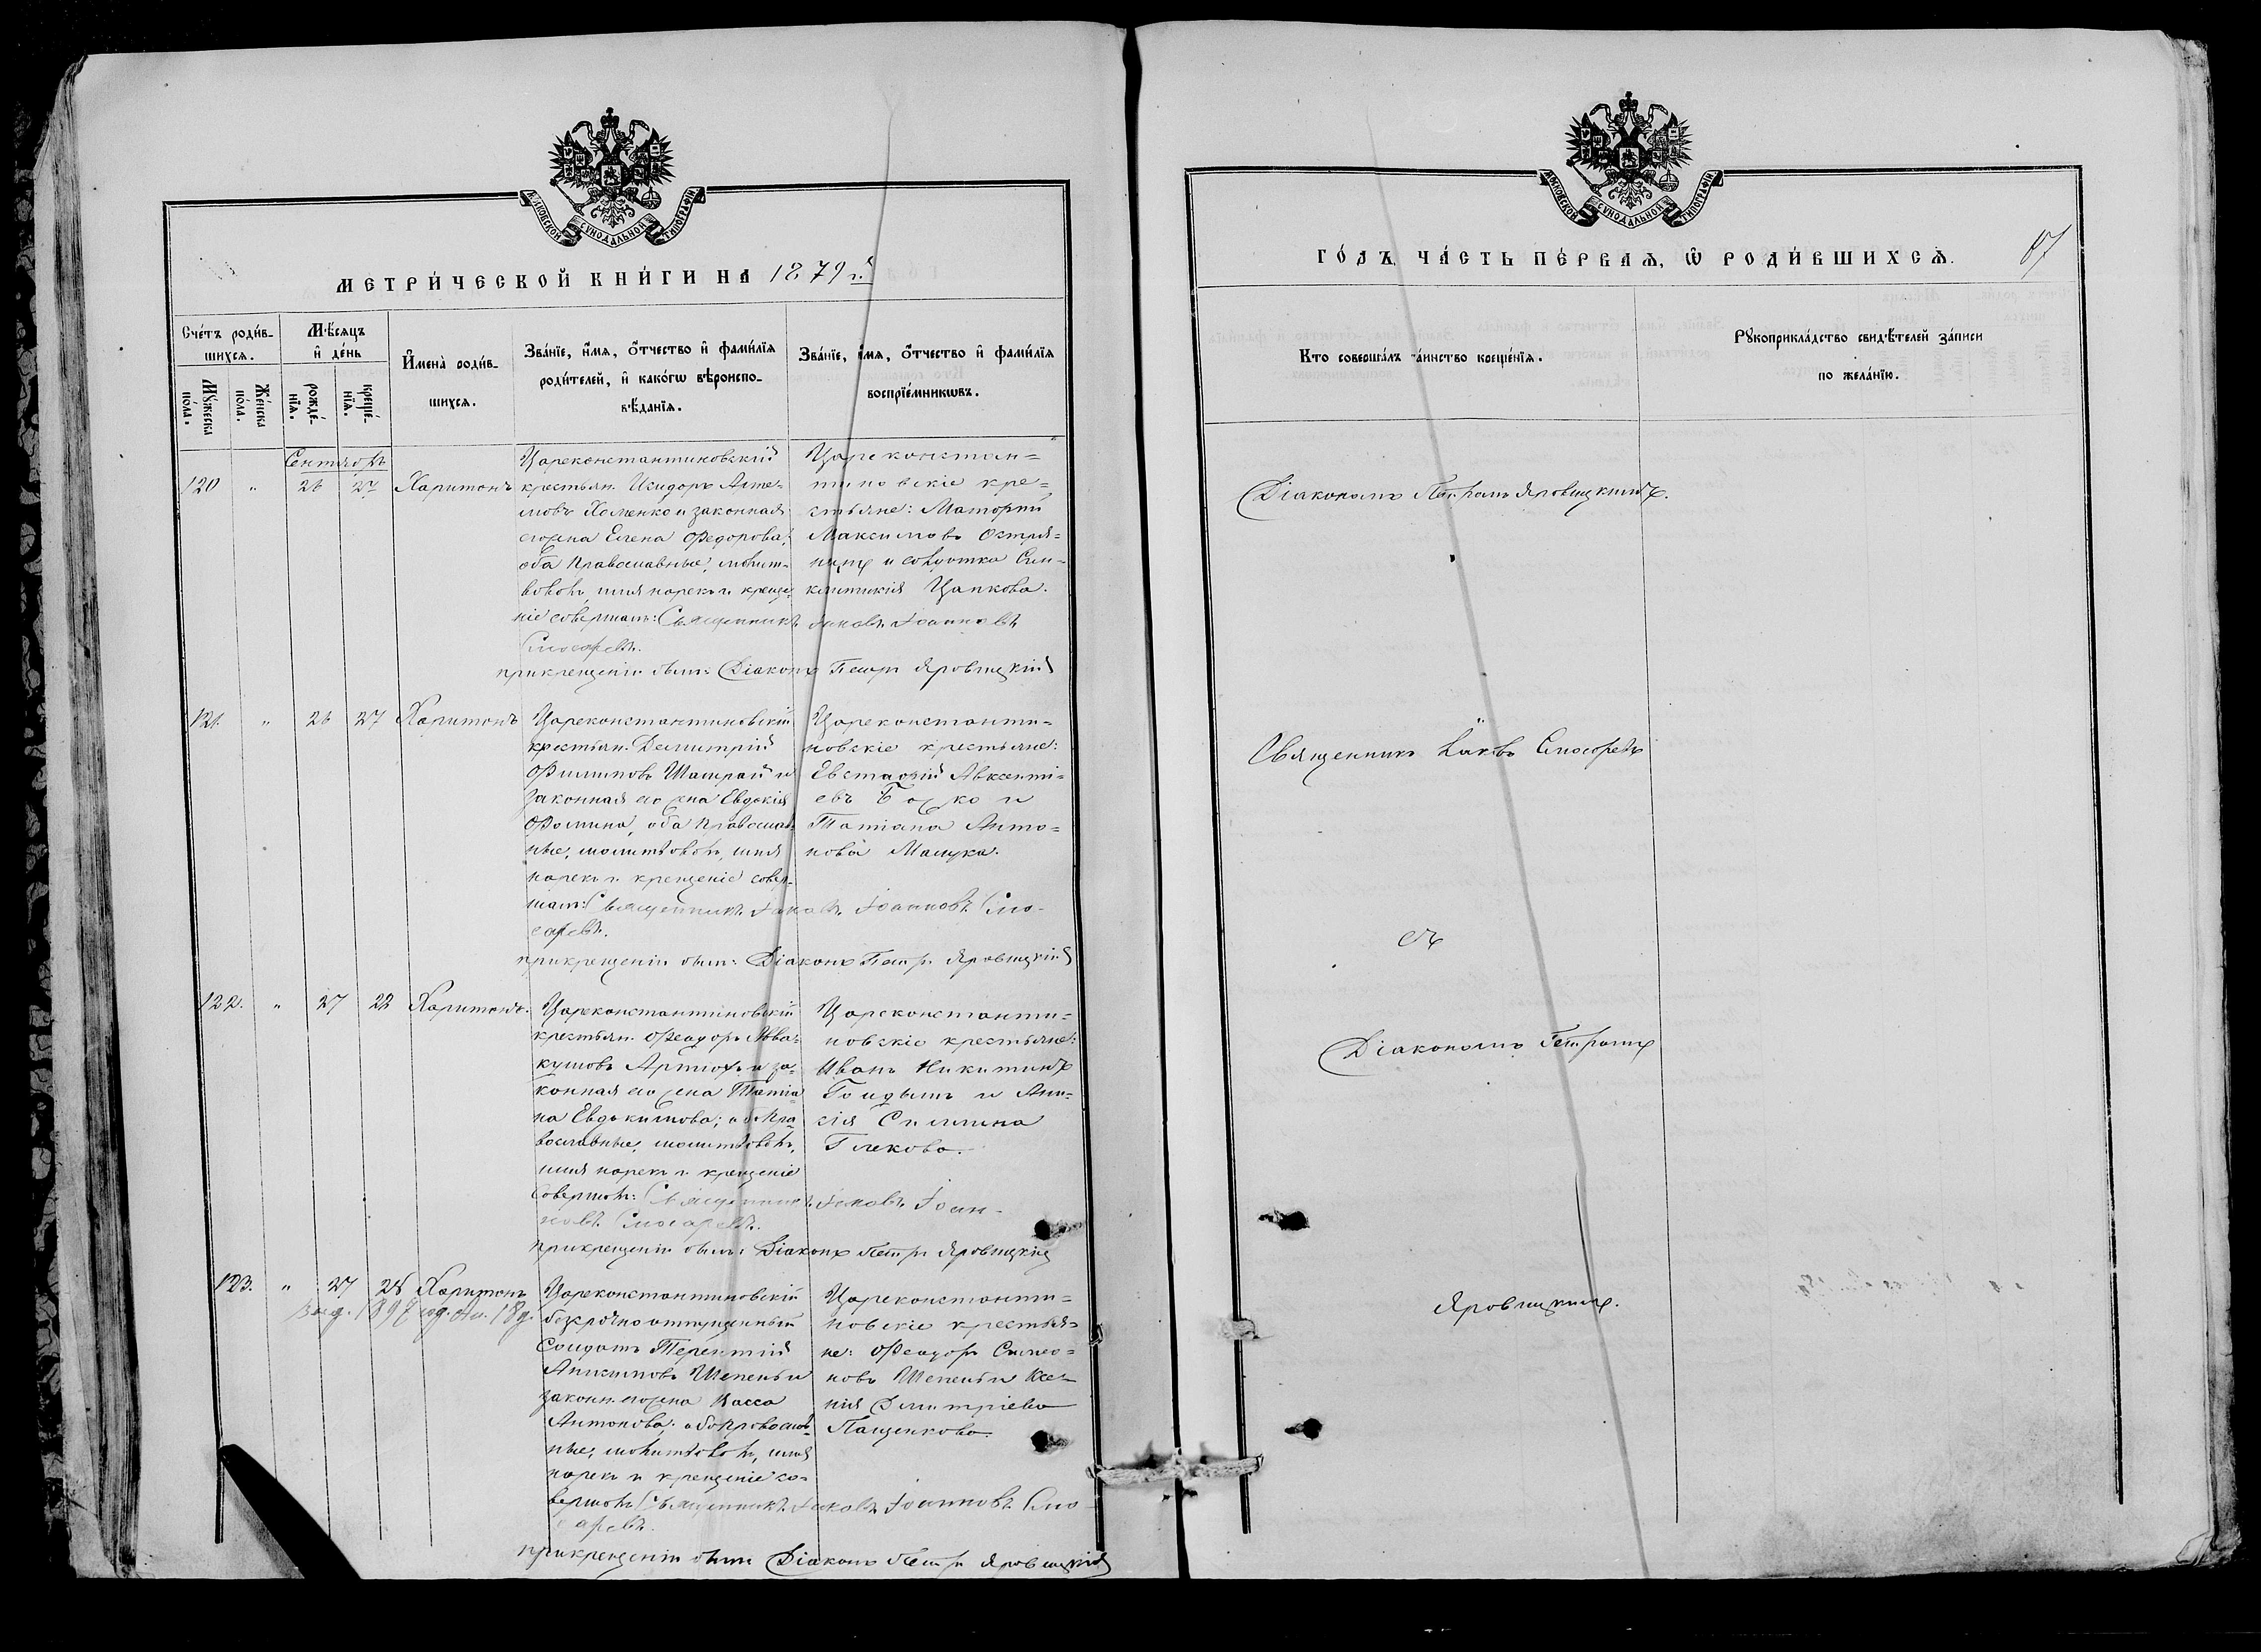 МОСКОВСКОЙ СѴНОДАЛЬНОЙ ТИПОГРАФІИ
МЕТРИ́ЧЕСКОЙ КНИ́ГИ НА 1879 г.
Сче́тъ роди́в-
шихсѧ.
Мꙋ́жеска
по́ла.
Же́нска
по́ла.
Мѣ́сѧцъ
и҆ де́нь
рожде́-
нїѧ.
креще́-
нїѧ.
И҆мена̀ роди́в-
шихсѧ.
Зва́нїе, и҆́мѧ, ѻ҆́тчество и҆ фами́лїѧ
роди́телей, и҆ како́гѡ вѣроиспо-
вѣ́данїѧ.
Зва́нїе, и҆́мѧ, ѻ҆́тчество и҆ фами́лїѧ
воспрїе́мникѡвъ.
Сентябрь
120 " 26 27 Харитонъ
Цареконстантиновскій
крестьян. Исидоръ Арте-
мовъ Хоменко и законная
его жена Елена Федорова;
оба Православные, молит-
вовалъ, имя нарекъ и креще-
ніе совершалъ: Священникъ Іаковъ Іоанновъ
Слюсаревъ.
при крещеніи былъ: Діаконъ Петръ Яровицкій
Цареконстан-
тиновскіе кре-
стьяне:
Максимовъ Остря-
ница и солдатка Син-
клитикія Цапкова.
121. " 26 27 Харитонъ
Цареконстантиновскій
крестьян. Димитрій
Филиповъ Шамрай и
законная его жена Евдокія
Фомина, оба Православ-
ные, молитвовалъ, имя
нарекъ и крещеніе совер-
шалъ: Священникъ Іаковъ Іоанновъ Слю-
саревъ.
при крещеніи былъ: Діаконъ Петръ Яровицкій
Цареконстанти-
новскіе крестьяне:
Евстафій Авксенті-
евъ Божко и
Татіана Анто-
нова
122. " 27 28 Харитонъ.
Цареконстантиновскій
крестьян. Феодоръ Авва-
кумовъ Артюхъ и за-
конная его жена Татіа-
на Евдокимова; оба Пра-
вославные, молитвовалъ,
имя нарекъ и крещеніе
совершалъ: Священникъ Іаковъ Іоан-
новъ Слюсаревъ.
при крещеніи былъ: Діаконъ Петръ Яровицкій
Цареконстанти-
новскіе крестьяне:
Иванъ Никитинъ
и Ани-
сія
Глекова.
123. " 27 28 Харитонъ
1897 18
Цареконстантиновскій
безсрочно отпущенный
Солдатъ Терентій
Анисимовъ Шепель и
законн. его жена Васса
Антонова; оба Православ-
ные, молитвовалъ, имя
нарекъ и крещеніе со-
вершалъ Священникъ Іаковъ Іоанновъ Слю-
саревъ.
при крещеніи былъ Діаконъ Петръ Яровицкій
Цареконстанти-
новскіе крестья-
не: Феодоръ Симео-
новъ Шепель и Ксе-
нія Димитріева
Пащенкова.
МОСКОВСКОЙ СѴНОДАЛЬНОЙ ТИПОГРАФІИ
ГО́ДЪ, ЧА́СТЬ ПЕ́РВАѦ, Ѡ҆ РОДИ́ВШИХСѦ.
Кто соверша́лъ та́инство креще́нїѧ.
Рꙋкоприкла́дство свидѣ́телей за́писи
по жела́нїю.
Діакономъ Петромъ Яровицкимъ.
Священникъ Іаковъ Слюсаревъ
съ
Діакономъ Петромъ
Яровицкимъ.